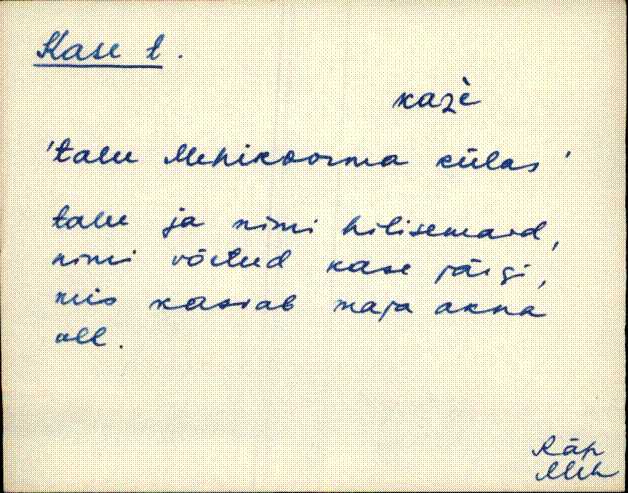 Kase t.
kazè
'talu Mehikoorma külas'
talu ja nimi hilisemad,
nimi võetud kase järgi,
mis kasvab maja akna
all.
Räp
Meh